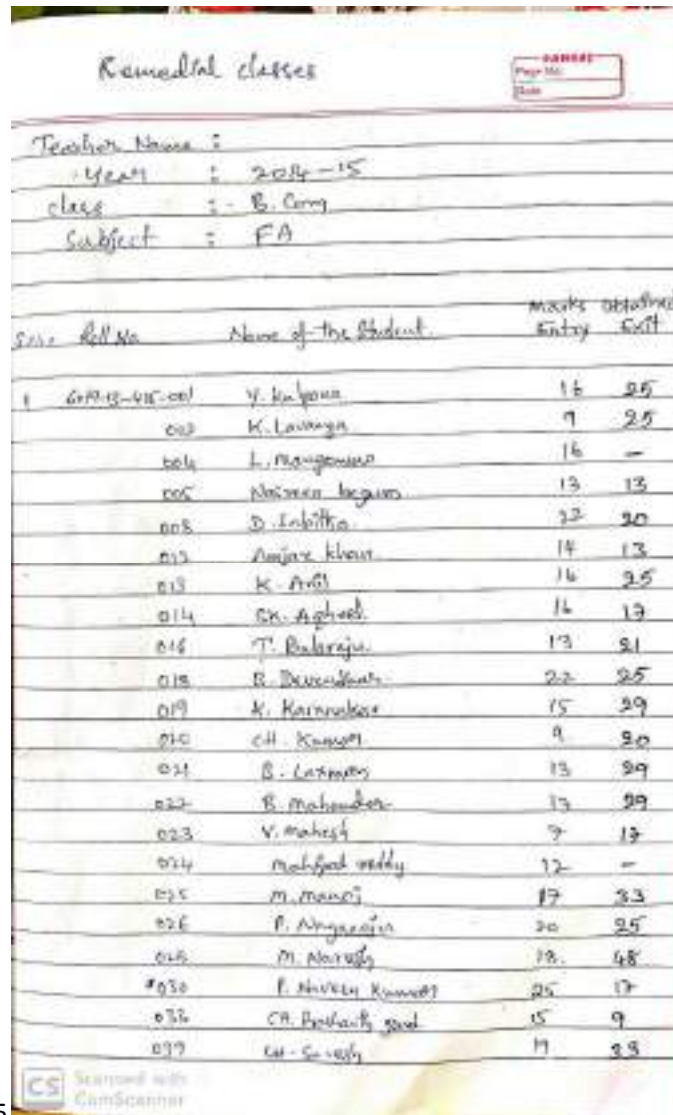 Remedial classes
Page No:
Date
Teacher Name :
Year : 2014-15
class :- B. Com
Subject : FA
Marks obtained
S.No. Roll No. Name of the Student. Entry Exit
1 -13-415-001 Y. Kalpana 16 25
K. Lavanya 9 25
004 L. 16 -
005 begum 13 13
008 D. 22 20
012 khan 14 13
013 K. Anil 16 25
014 SK. 16 17
016 T. Balraju 13 21
018 B. Devendhar 22 25
019 K. Karunakar 15 29
020 CH. Kumar 9 20
021 B. Laxman 13 29
022 B. Mahender 29
023 V. Mahesh 17
024 reddy 12 -
025 M. Manoj 17 33
026 P. Nagaraju 20 25
M. Naresh 18. 48
030 P. Naveen Kumar 25 17
CH. Prashanth goud 15 9
CH. Suresh 33
CS Scanned with
CamScanner
5